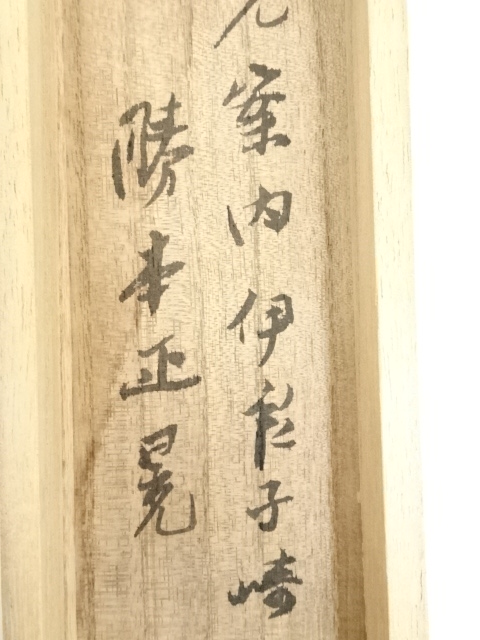 案内伊私子崎
勝本正晃